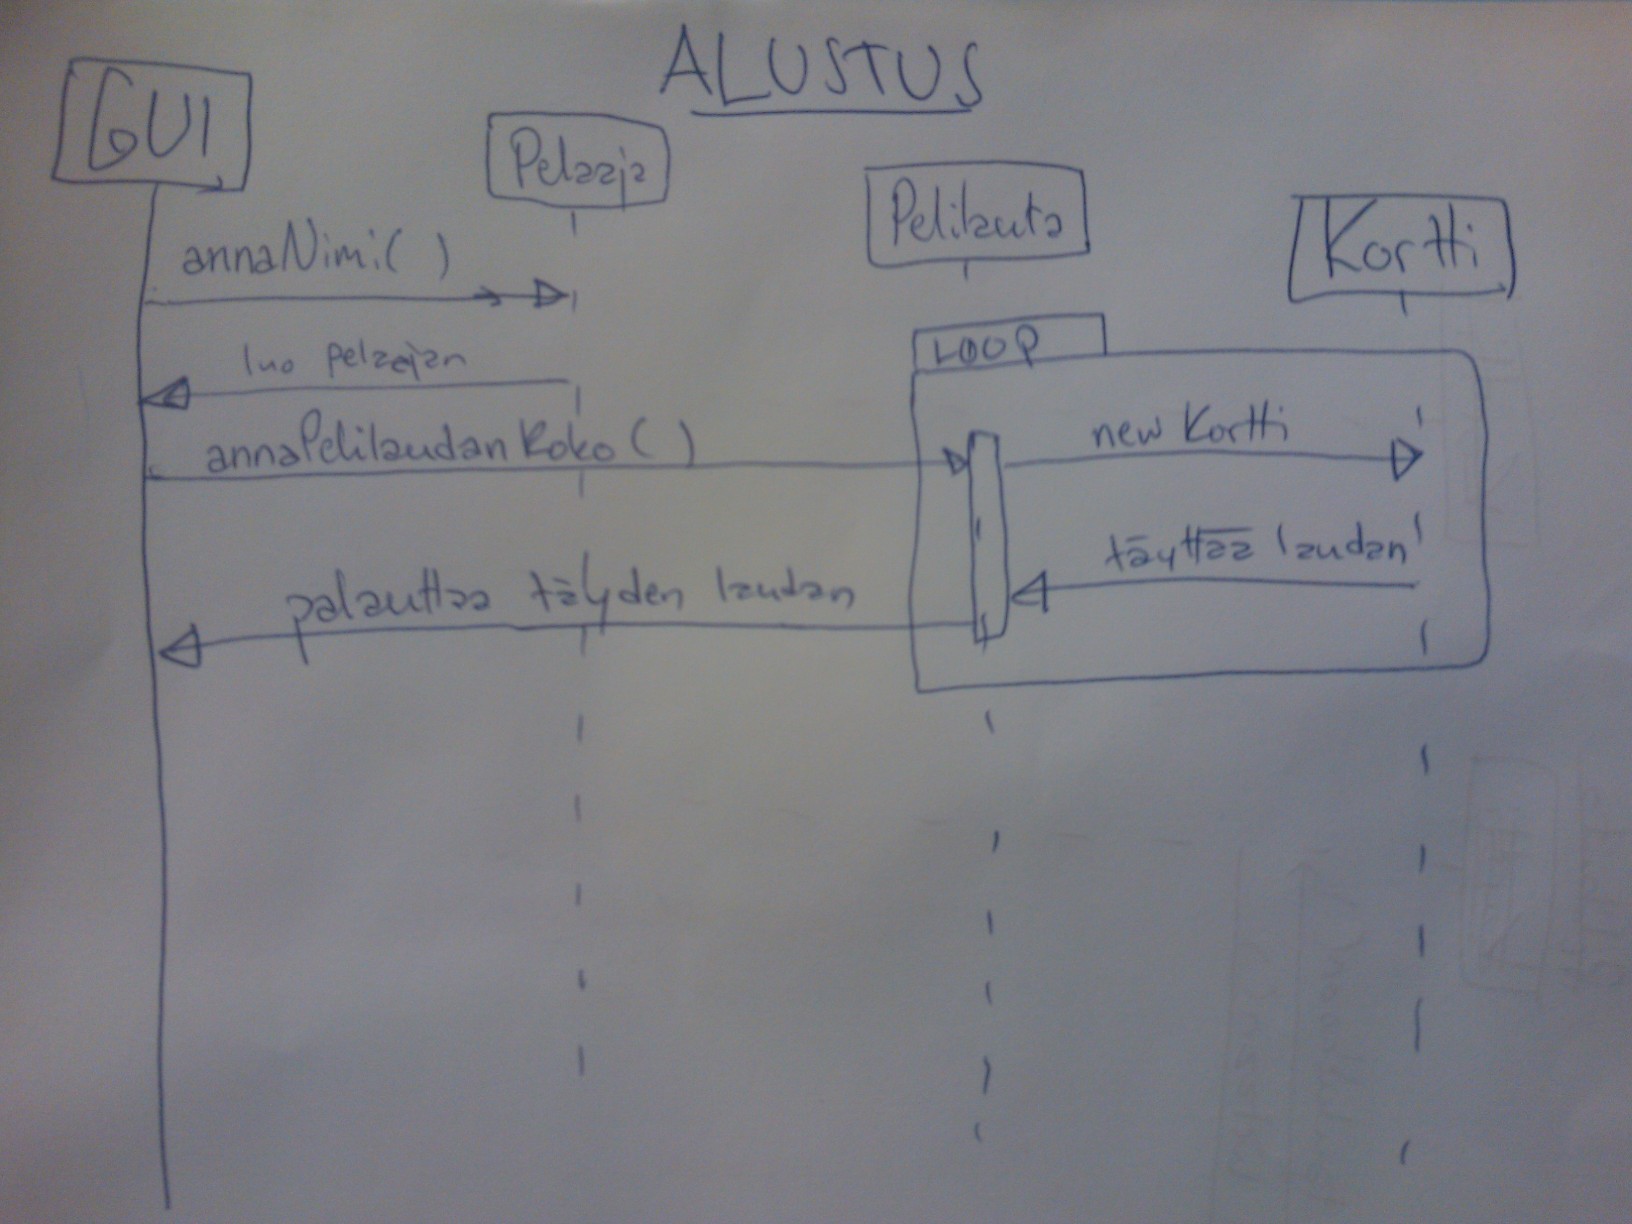 ALUSTUS
GUI
Pelaaja
Pelilauta
Kortti
annaNimi( )
luo pelaajan
LOOP
annaPelilaudanKoko( )
new Kortti
täyttää laudan
palauttaa täyden laudan